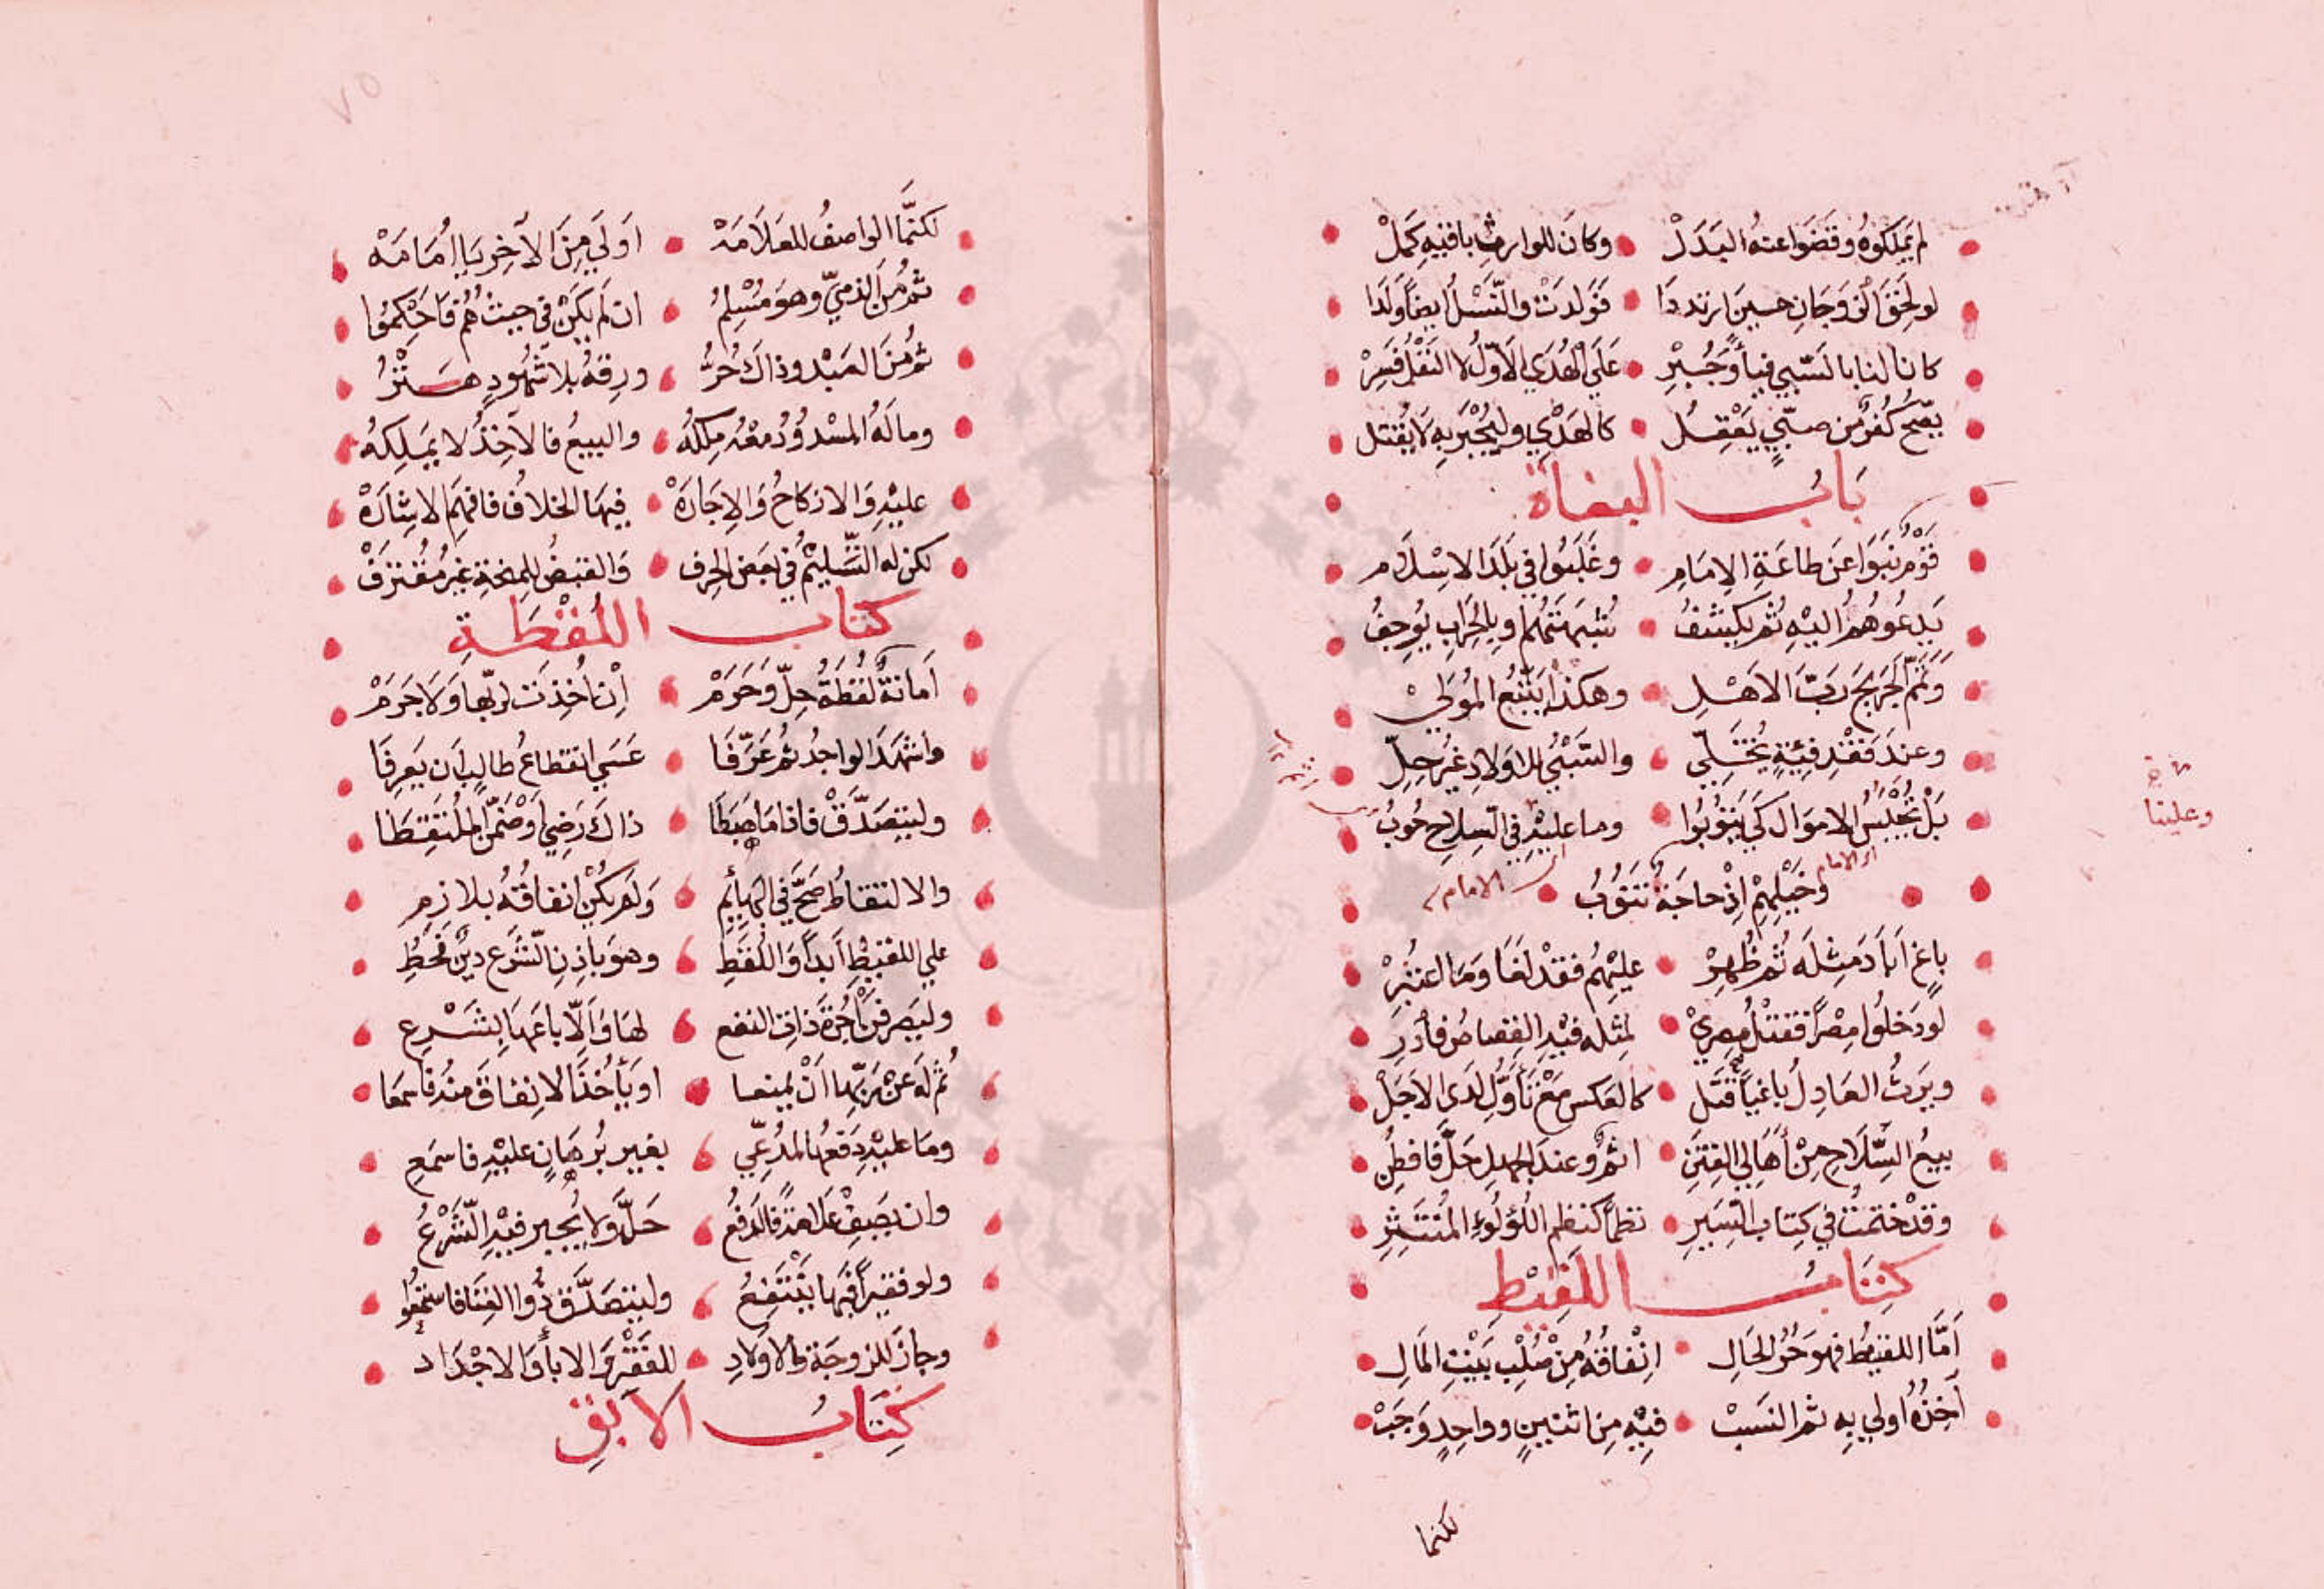 لم يملكوه وقضوا عنه البدل • وكان للوارث باقيه كمل
لو لحق الزوجان حين ارتددا • فولدت والنسل ايضا ولدا
كانا لنا بالسبي فيأ وجبر • على الهدي الاول لا النفل فسر
يصح كفر من صبي يعقل • كالهدي وليجبر به لا يقتل
باب البغاة
قوم نبوا عن طاعة الامام • وغلبوا في بلد الاسلام
يدعوهم اليه ثم يكشف • شبهتهم وبالحراب يوجف
وتمم الجريح رب الاهل • وهكذا يتبع المولي
وعند فقد فئية يختلي • والسبي للاولاد غير حل
بل تحبس الاموال كي يتوبوا • وما عليه في السلاح حوب
وخيلهم اذ حاجة تنوب
اي الامام
اي الامام
باغ اباد مثله ثم ظهر • عليهم فقد لغا وما اعتبر
لو دخلوا مصرا فقتل مصري • لمثله فيه القصاص فادر
ويرث العادل باغيا قتل • كالعكس مع تأول لدى الاجل
بيع السلاح من أهالي الفتن • اثم وعند الجهل حل فافطن
وقد ختمت في كتاب السير • نظما كنظم اللؤلؤ المنتثر
كتاب اللقيط
أما اللقيط فهو حر الحال • انفاقه من صلب بيت المال
آخذه اولي به ثم النسب • فيه من اثنين وواحد وجب
لكنما
وعلينا
٧٥
لكنما الواصف للعلامه • اولي من الآخر يا امامه
ثم من الذمي وهو مسلم • ان لم يكن في حيث هم فاحكموا
ثم من العبد وذاك حر • ورقه بلا شهود هتر
وماله المشدود معه ملكه • والبيع فالآخذ لا يملكه
عليه والانكاح والاجاره • فيها الخلاف فافهم الاشاره
لكن له التسليم في بعض الحرف • والقبض للمنحة غير مقترف
كتاب اللقطة
أمانة لقطة حل وحرم • إن أخذت لربها ولا جرم
واشهد الواجد ثم عرفا • عسي انقطاع طالب ان يعرفا
وليتصدق فاذا ما ضبطا • ذاك رضي أو ضمن الملتقطا
والالتقاط صح في البهائم • ولم يكن انفاقه بلازم
علي اللقيط ابدا واللقط • وهو باذن الشرع دين فحط
وليصرفن أجرة ذات النفع • لها والا باعها بشرع
ثم له عن ربها أن يمنعا • او يأخذ الانفاق منه فاسمعا
وما عليه دفعها للمدعي • بغير برهان عليه فاسمع
وان يصف علامة فالدفع • حل ولا يجبر فيه الشرع
ولو فقيرا فبها ينتفع • وليتصدق ذوا الغنا فاستمعوا
وجاز للزوجة والاولاد • للفقر والابا والاجداد
كتاب الآبق